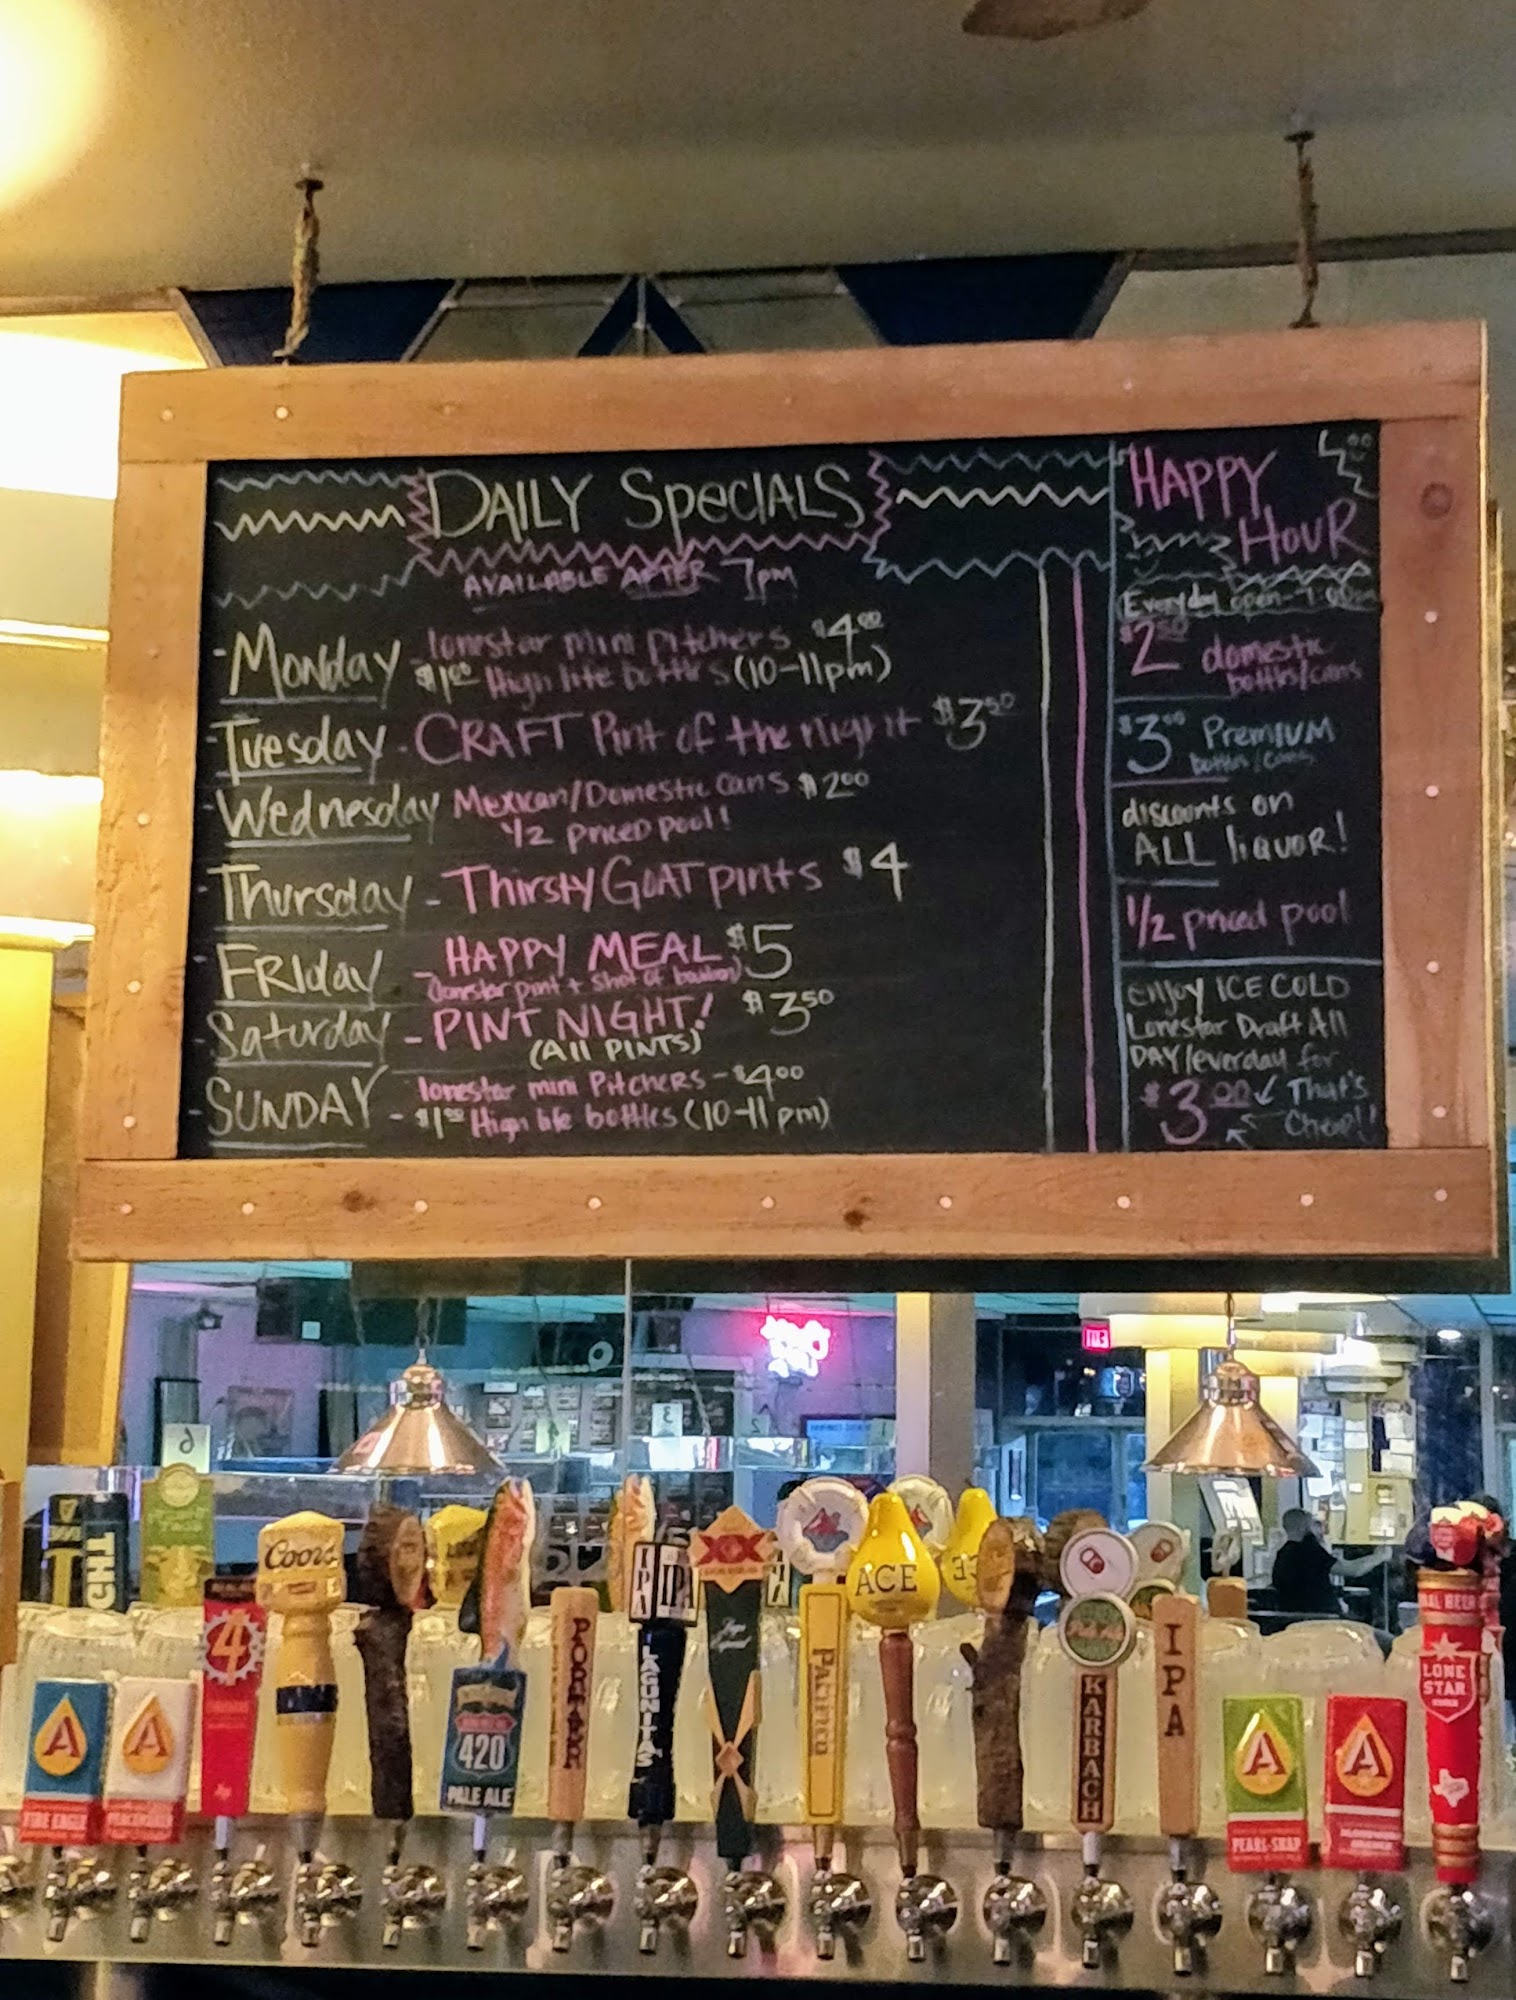 DAILY SpecIALS
AVAILABLE AFTER 7pm
- Monday - lonestar mini pitchers $4.00
$1.00 High life bottles (10-11pm)
- Tuesday - CRAFT Pint of the night $3.50
- Wednesday Mexican/Domestic cans $2.00
1/2 priced pool!
- Thursday - Thirsty GOAT pints $4
- FRIday - HAPPY MEAL $5
(lonestar pint + shot of bourbon)
- Saturday - PINT NIGHT! $3.50
(All PINTS)
- SUNDAY lonestar mini PitcHERS - $4.00
- $1.00 High life bottles (10-11pm)
HAPPY
HOUR
Everyday open-7:00pm
$2.50 domestic
bottles/cans
$3.00 PremIUM
bottles/cans
discounts on
ALL liquor!
1/2 priced pool
enjoy ICE COLD
Lonestar Draft All
DAY/everday for
$3.00 That's
Cheap!!
Coors
4
A
FIRE EAGLE
A
420
PALE ALE
IPA
IPA
LAGUNITAS
XX
Pacifico
ACE
KARBACH
IPA
A
PEARL-SNAP
A
LONE
STAR